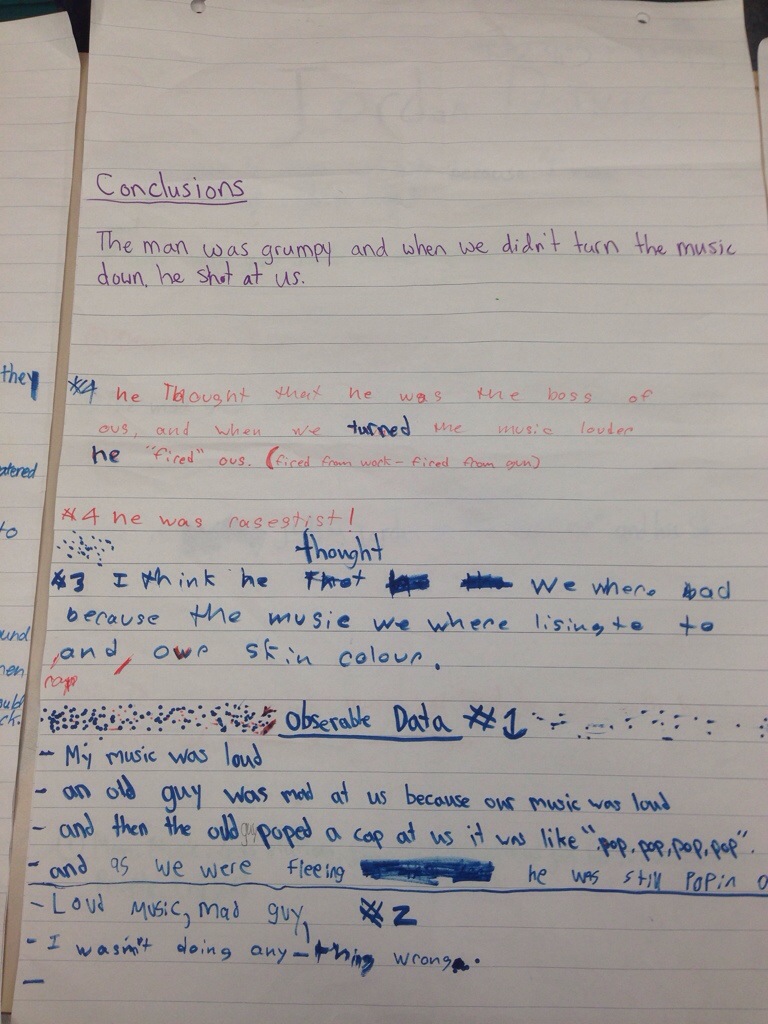 Conclusions
The man was grumpy and when we didn't turn the music
down, he shot at us.
they
#4 he Thought that he was the boss of
ous, and when we turned the music louder
atered
he "fired" ous. (fired from work - fired from gun)
to
#4 he was rasestist!
thought
#3 I think he We where bad
because the music we where lisingte to
und
and owr skin colour.
hen
rap
oub
ck.
Obserable Data #1
- My music was loud
- an old guy was mad at us because our music was loud
- and then the old guy poped a cap at us it was like "pop, pop, pop, pop".
- and as we were fleeing he was still Popin
- Loud music, mad guy, #2
- I wasn't doing any-thing wrong.
-